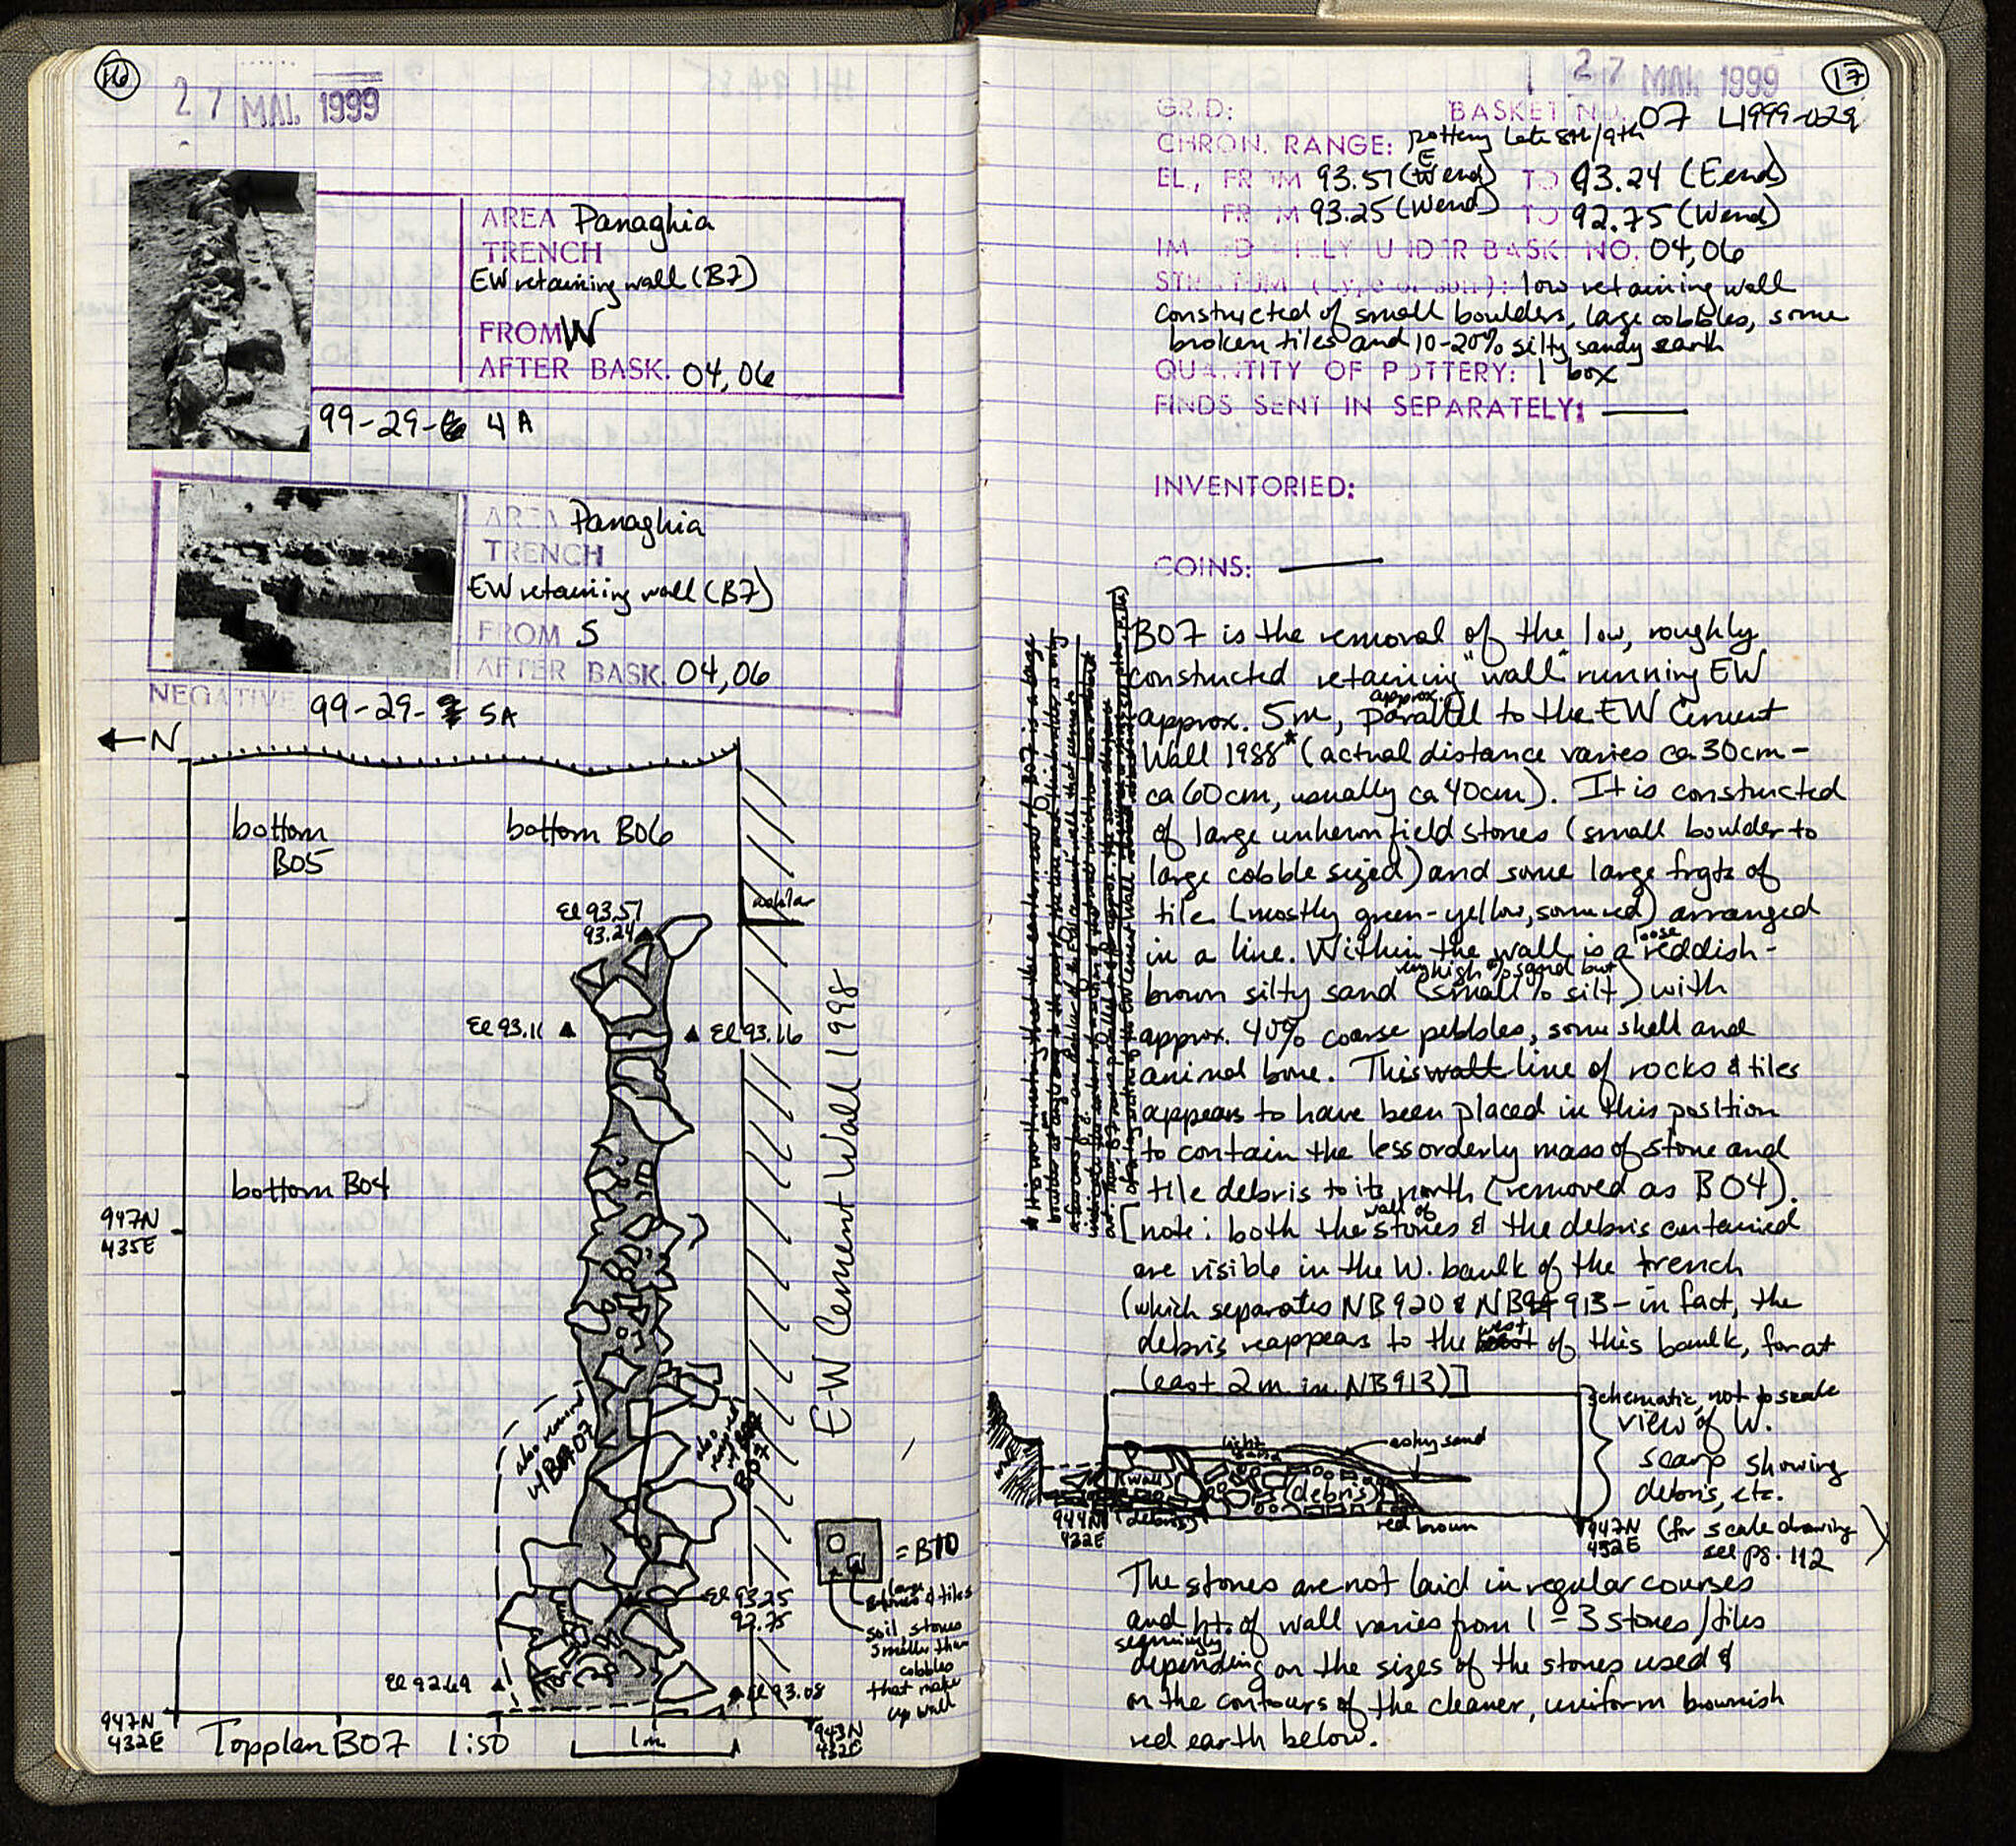 16
27 MAI. 1999
AREA Panaghia
TRENCH
EW retaining wall (B7)
FROM W
AFTER BASK. 04,06
99-29- 4A
AREA Panaghia
TRENCH
EW retaining wall (B7)
FROM S
AFTER BASK. 04,06
NEGATIVE 99-29- 5A
←N
bottom
B05
bottom B06
ashlar
El 93.57
93.24
El 93.11
El 93.16
E-W Cement Wall 1998
bottom B04
947N
435E
also removed
w/ B07
also
removed
B07
= B10
large
stones & tiles
soil, stones
smaller than
cobbles
that make
up wall
El 93.25
92.75
El 92.69
El 93.08
947N
432E
Topplan B07 1:50
1m
943N
432E
17
27 MAI. 1999
GRID: BASKET NO. 07 L1999-029
CHRON. RANGE: pottery late 8th/9th
EL., FROM 93.57 (E end) TO 93.24 (E end)
FROM 93.25 (W end) TO 92.75 (W end)
IMMEDIATELY UNDER BASK. NO. 04,06
STRATUM (type of soil): low retaining wall
constructed of small boulders, large cobbles, some
broken tiles and 10-20% silty, sandy earth
QUANTITY OF POTTERY: 1 box
FINDS SENT IN SEPARATELY: —
INVENTORIED:
COINS: —
B07 is the removal of the low, roughly
constructed retaining "wall" running EW
approx. 5m, approx. parallel to the EW Cement
Wall 1988* (actual distance varies ca 30cm-
ca 60cm, usually ca 40cm). It is constructed
of large unhewn field stones (small boulder to
large cobble sized) and some large frgts of
tile (mostly green-yellow, some red) arranged
in a line. Within the wall is a loose reddish-
brown silty sand (very high % sand but small % silt) with
approx. 40% coarse pebbles, some shell and
animal bone. This wall line of rocks & tiles
appears to have been placed in this position
to contain the less orderly mass of stone and
tile debris to its north (removed as B04).
[note: both the wall of stones & the debris contained
are visible in the W. baulk of the trench
(which separates NB920 & NB 913 - in fact, the
debris reappears to the west of this baulk, for at
least 2m in NB913)]
schematic, not to scale
view of W.
scarp showing
debris, etc.
(for scale drawing
see pg. 112
light
sand
ashy sand
(wall)
(debris)
(debris)
red brown
944N
432E
947N
432E
The stones are not laid in regular courses
and ht. of wall varies from 1-3 stones/tiles
seemingly
depending on the sizes of the stones used &
on the contours of the cleaner, uniform brownish
red earth below.